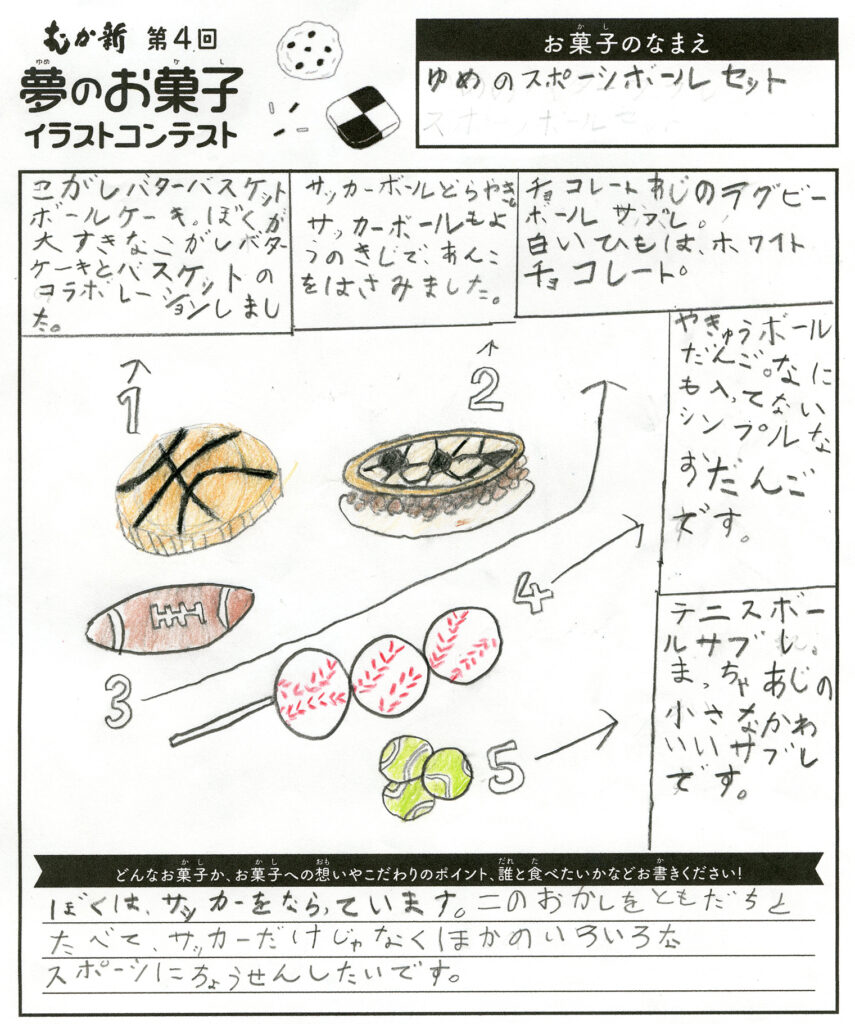 むか新 第4回
夢のお菓子
ゆめ か し
イラストコンテスト
お菓子のなまえ
か し
ゆめのスポーツボールセット
こがしバターバスケット
ボールケーキ。ぼくが
大すきなこがしバター
ケーキとバスケットの
コラボレーションしまし
た。
サッカーボールどらやき。
サッカーボールもよ
うのきじで、あんこ
をはさみました。
チョコレートあじのラグビー
ボールサブレ。
白いひもは、ホワイト
チョコレート。
やきゅうボール
だんご。なに
も入ってない
シンプルな
おだんご
です。
テニスボー
ルサブレ。
まっちゃあじの
小さなかわ
いいサブレ
です。
1
2
3
4
5
どんなお菓子か、お菓子への想いやこだわりのポイント、誰と食べたいかなどお書きください!
か し か し おも だれ た か
ぼくは、サッカーをならっています。このおかしをともだちと
たべて、サッカーだけじゃなくほかのいろいろな
スポーツにちょうせんしたいです。